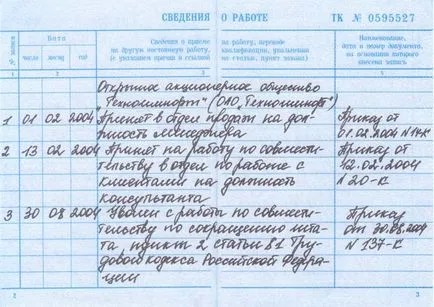 СВЕДЕНИЯ О РАБОТЕ ТК № 0595527
№ записи
Дата
число месяц год
Сведения о приеме на работу, переводе
на другую постоянную работу, квалификации, увольнении
(с указанием причин и ссылкой на статью, пункт закона)
Наименование,
дата и номер документа,
на основании которого
внесена запись
1 2 3 4
Открытое акционерное общество
"Техноимпорт" (ОАО "Техноимпорт")
1 01 02 2004 Принят в отдел продаж на дол- Приказ от
жность менеджера 01.02.2004 N 14-к
2 13 02 2004 Принят на работу по совмести- Приказ от
тельству в отдел по работе с 12.02.2004
клиентами на должность N 20-к
консультанта
3 30 08 2004 Уволен с работы по совмести- Приказ
тельству по сокращению шта- от 30.08.2004
та, пункт 2 статьи 81 Тру- N 137-к
дового кодекса Российской Федера-
ции
2 3